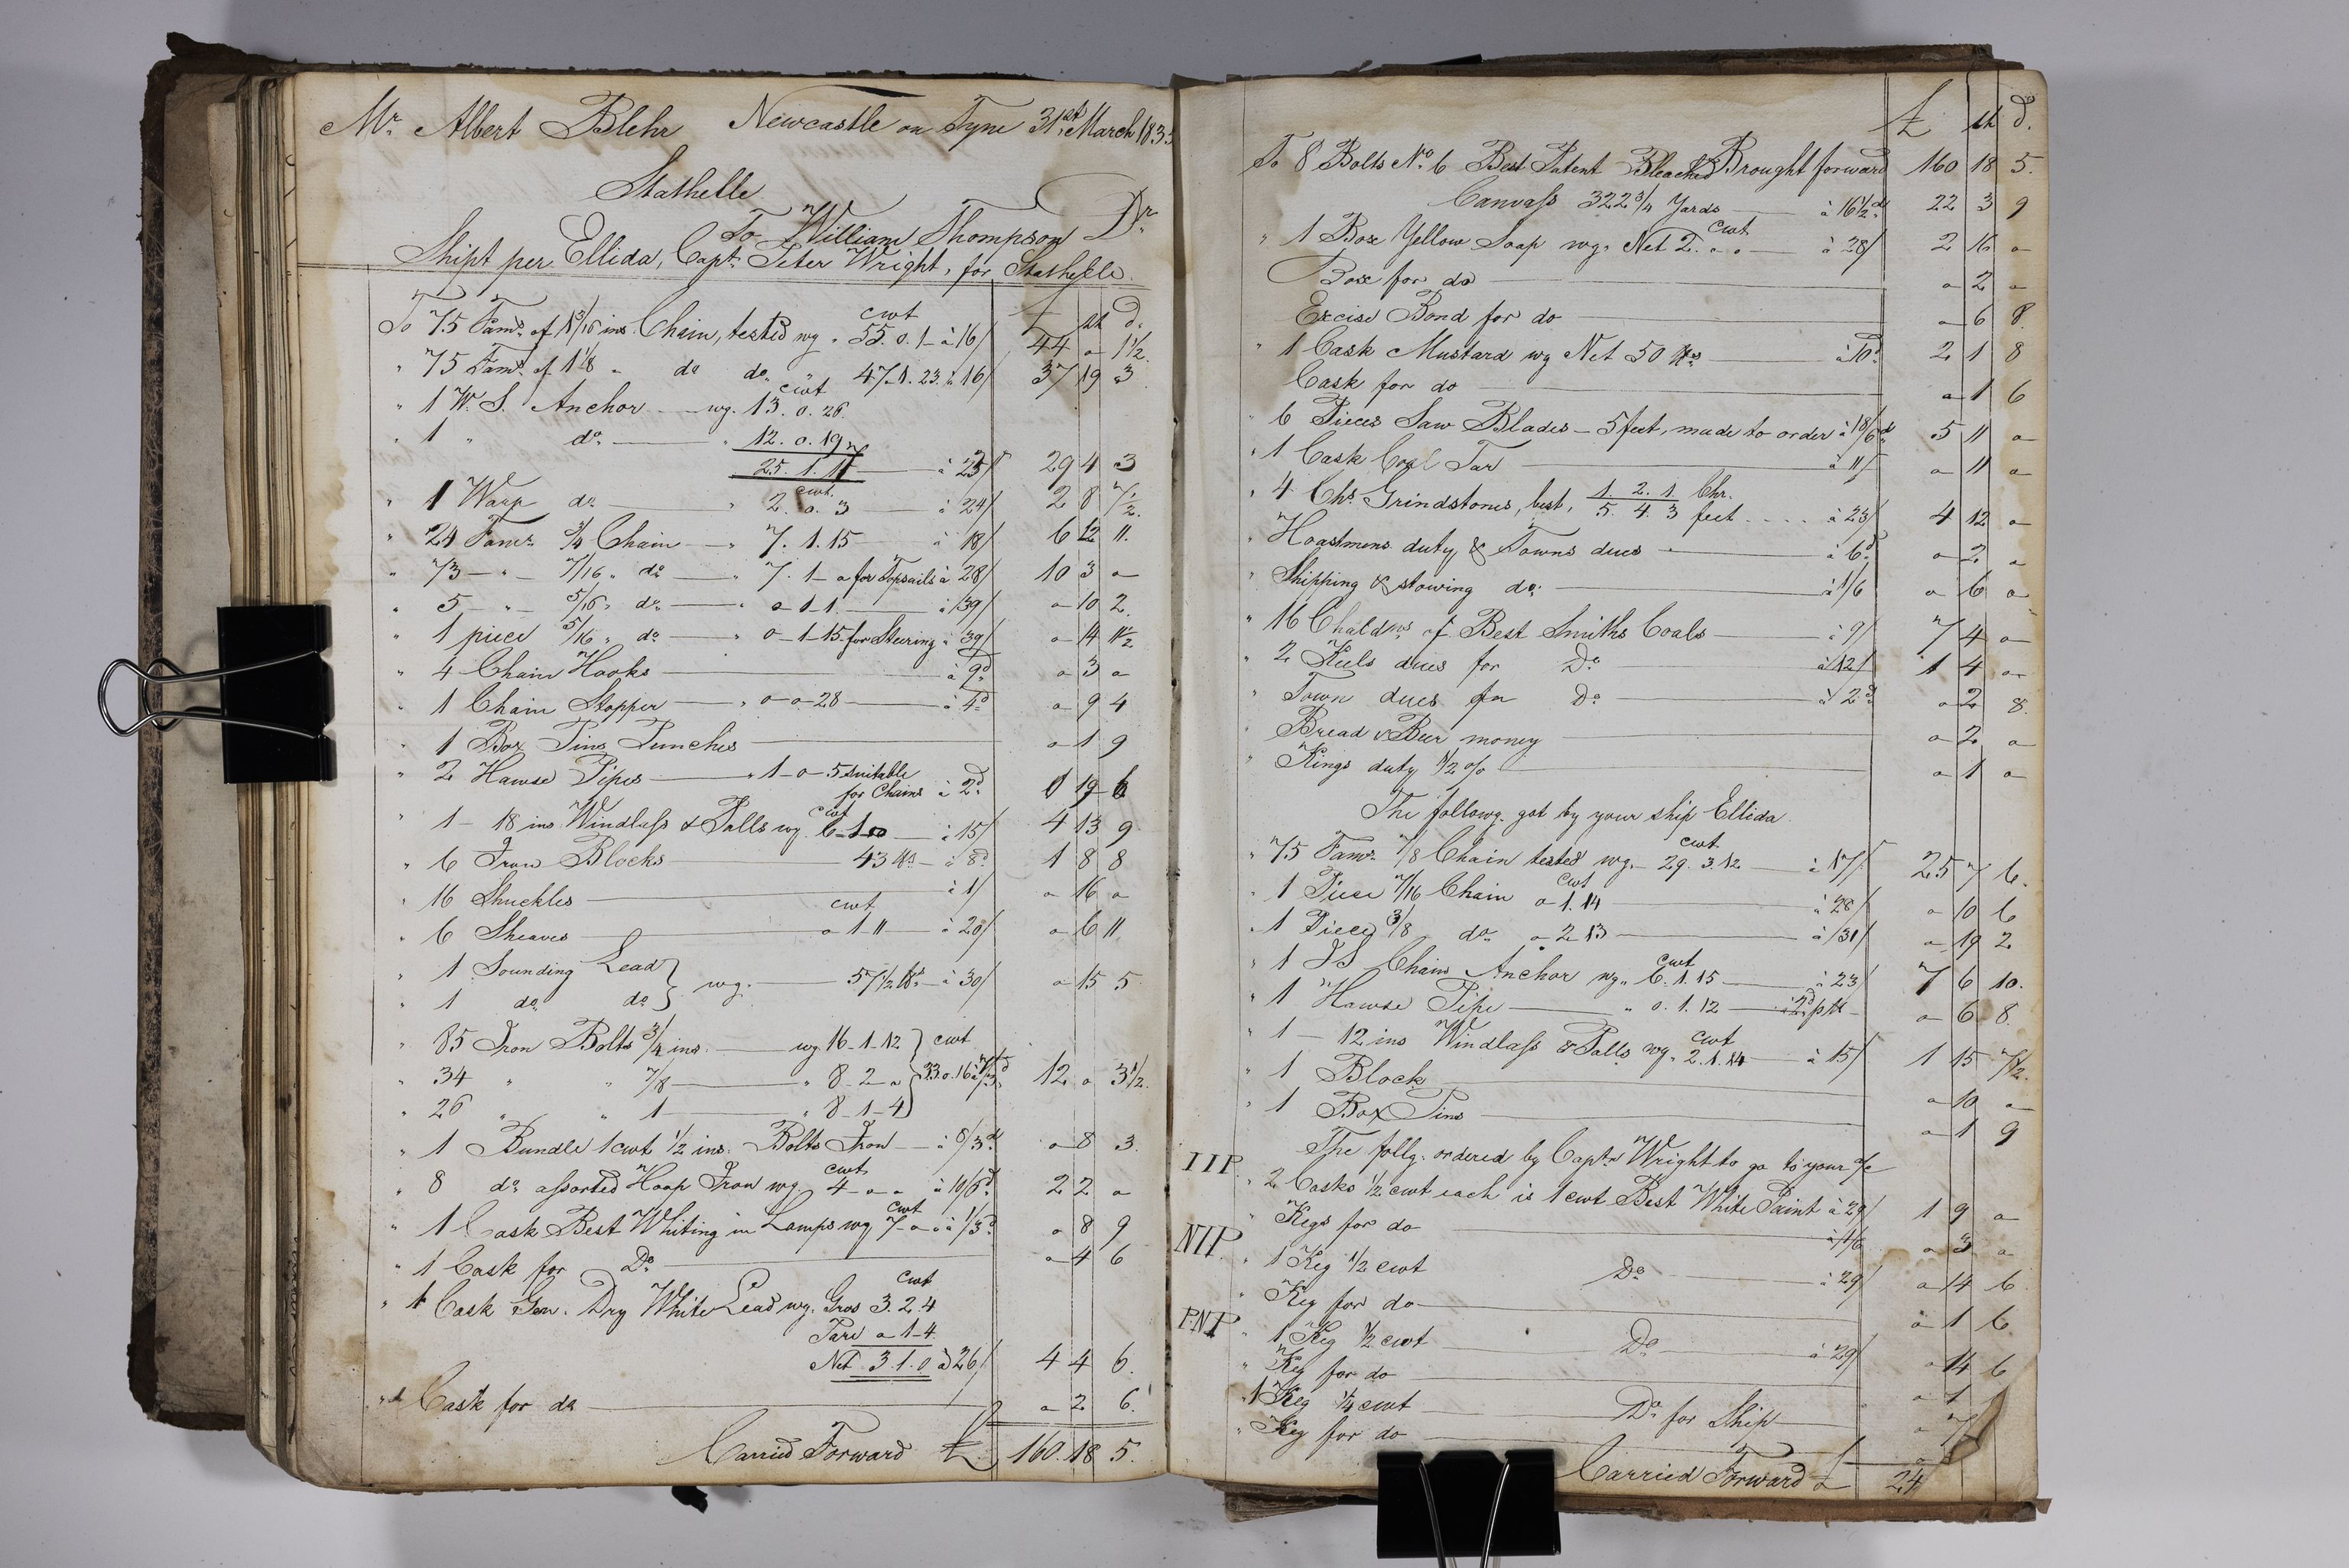 Mr. Albert Blehr Newcastle on Tyne 31st March 183
Stathelle
To William Thompson Dr.
Shipt per Ellida, Capt. Peter Wright, for Stathelle.
£ sh d.
To 75 Fams. of 1 3/16 ins. Chain, tested wg. cwt 55. 0. 1 - à 16/ 44 " 1 1/2.
" 75 Fams. of 1 1/8 " do do. " 47. 1. 23. à 16/ 37 19 3
" 1 W. S. Anchor wg. cwt 13. 0. 26.
" 1 " do. " 12. 0. 19
25. 1. 17 à 23/ 29 4 3
" 1 Warp do. " cwt. 2. 0. 3 à 24/ 2 8 7 1/2.
" 24 Fams. 3/4 Chain " 7. 1. 15 à 18/ 6 12 11.
" 73 - " - 7/16 " do " 7. 1 - o for Topsails à 28/ 10 3 o
" 5 - " - 5/16 " do. " o - 1 - 1. à 39/ o 10 2.
" 1 piece 5/16 " do " o - 1 - 15. for Steering à 39/ o 14 11 1/2
" 4 Chain Hooks à 9d. o 3 o
" 1 Chain Stopper " o - o - 28 à 4d o 9 4
" 1 Box Pins Punches o 1 9
" 2 Hawse Pipes " 1 - o - 5 suitable
for Chains à 2d. 0 19 6
" 1 - 18 ins. Windlass & Palls wg. cwt 6 - 1 - o à 15/ 4 13 9
" 6 Iron Blocks 43 lbs à 8d 1 8 8
" 16 Shuckles à 1/ o 16 o
" 6 Sheaves cwt o 1 11 à 20/ o 6 11
" 1 Sounding Lead } wg. 57 1/2 lbs à 30/ o 15 5
" 1 do. do. }
" 85 Iron Bolts 3/4 ins. wg. 16 - 1 - 12 } cwt
" 34 " " 7/8 " 8 - 2 - o } 33. 0. 16 à 7/3d. 12 o 3 1/2.
" 26 " " 1 " 8 - 1 - 4 }
" 1 Bundle 1 cwt 1/2 ins. Bolts Iron à 8/3d o 8 3.
" 8 do. assorted Hoop Iron wg. cwt. 4 - o - o à 10/6d. 2 2 o
" 1 Cask Best Whiting in Lamps wg cwt 7 - o - o à 1/3d o 8 9
" 1 Cask for Do. o 4 6
" 1 Cask Gen. Dry White Lead wg. Gros cwt 3. 2. 4
Tare o - 1 - 4
Net 3. 1. 0 à 26/ 4 4 6.
" 1 Cask for do o 2 6.
Carried Forward £ 160. 18 5.
£ sh d.
Brought forward 160 18 5.
To 8 Bolts No. 6 Best Patent Bleached
Canvass 322 3/4 Yards à 16 1/2d. 22 3 9
" 1 Box Yellow Soap wg. Net cwt 2. o. o à 28/ 2 16 o
Box for do o 2 o
Excise Bond for do o 6 8.
" 1 Cask Mustard wg Net 50 lbs à 10d. 2 1 8
Cask for do o 1 6
" 6 Pieces Saw Blades - 5 feet, made to order à 18/6d 5 11 o
" 1 Cask Coal Tar à 11/ o 11 o
" 4 Chs. Grindstones, best, 1. 2. 1 Chr. / 5. 4. 3 feet . . . . à 23/ 4 12 o
" Hoastmens duty & Towns dues à 6d. o 2 o
" Shipping & stowing do. à 1/6 o 6 o
" 16 Chaldns. of Best Smiths Coals à 9/ 7 4 o
" 2 Keels dues for Do à 12/ 1 4 o
" Town dues for Do à 2d o 2 8.
" Bread & Beer money o 2 o
" Kings duty 1/2 % o 1 o
The followg. got by your ship Ellida.
" 75 Fams. 7/8 Chain tested wg. cwt 29. 3. 12 à 17/ 25 7 6.
" 1 Piece 7/16 Chain cwt o - 1. 14 à 28/ o 10 6
" 1 Piece 3/8 do. o - 2 13 à 31/ o 19 2
" 1 IS Chain Anchor wg. cwt 6. 1. 15 à 23/ 7 6 10.
" 1 Hawse Pipe " 0. 1. 12 à 2d p lb o 6 8.
" 1 - 12 ins Windlass & Palls wg. cwt 2. 1. 14 à 15/ 1 15 7 1/2.
" 1 Block o 10 o
" 1 Box Pins o 1 9
The follg. ordered by Captn. Wright to go to your a/c
IIP. " 2 Casks 1/2 cwt each is 1 cwt Best White Paint à 29/ 1 9 o
" Kegs for do à 1/6 o 3 o
NIP. " 1 Keg 1/2 cwt Do. à 29/ o 14 6
" Keg for do o 1 6
PNP " 1 Keg 1/2 cwt Do à 29/ o 14 6
" Keg for do o 1
" 1 Keg 1/4 cwt Do. for Ship o 7
" Keg for do
Carried Forward £ 24